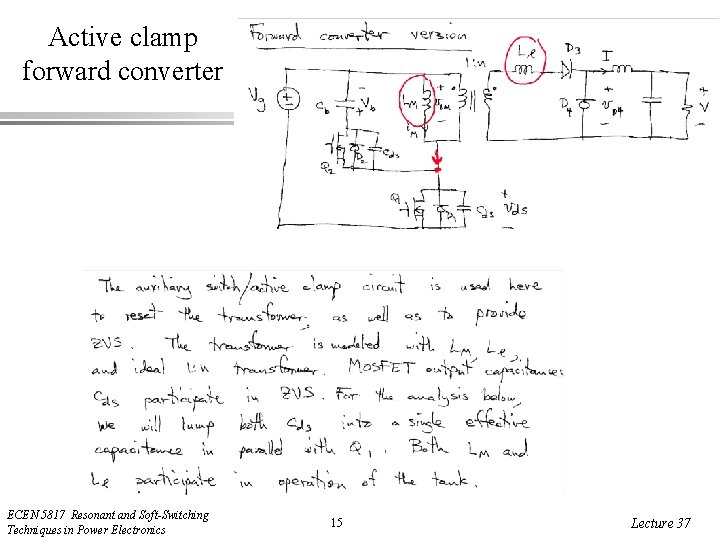 Active clamp
forward converter
Forward converter version
1:n
Le
D3
I
Vg
+
−
Cb
−
Vb
+
LM
+
vM
−
iM
D4
+
vD4
−
+
V
−
Q2
D2
Cds
Q1
D1
Cds
+
vds
−
The auxiliary switch/active clamp circuit is used here
to reset the transformer, as well as to provide
ZVS. The transformer is modeled with LM, Le,
and ideal 1:n transformer. MOSFET output capacitances
Cds participate in ZVS. For the analysis below,
we will lump both Cds into a single effective
capacitance in parallel with Q1. Both LM and
Le participate in operation of the tank.
ECEN 5817 Resonant and Soft-Switching
Techniques in Power Electronics
15
Lecture 37